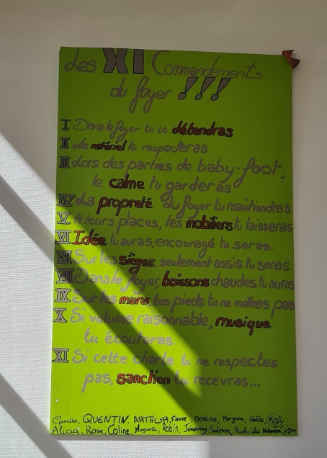 Les XI Commandements
du foyer !!!
I Dans le foyer tu te détendras
II Le matériel tu respecteras
III Lors des parties de baby-foot,
le calme tu garderas
IV La propreté du foyer tu maintiendras
V A leurs places, les mobiliers tu laisseras
VI Idée tu auras, encouragé tu seras.
VII Sur les sièges, seulement assis tu seras
VIII Dans le foyer, boissons chaudes tu auras
IX Sur les murs tes pieds tu ne mettras pas
X Si volume raisonnable, musique
tu écouteras
XI Si cette charte tu ne respectes
pas, sanction tu recevras...
Camille, QUENTIN, ARTHUR, Morgane,
Alicia, Rose, Coline, Auguste, Robin,